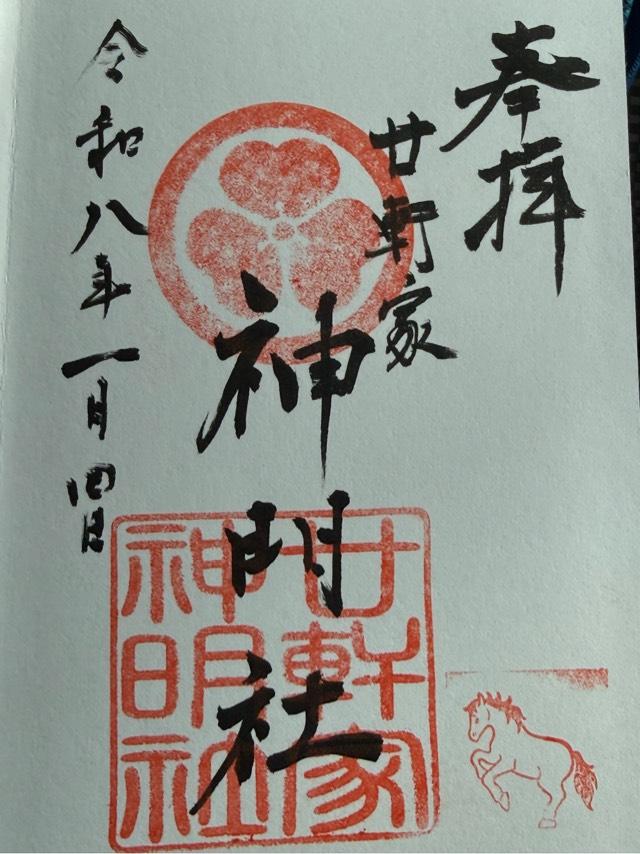 奉拝
廿軒家
神明社
令和八年一月四日
廿軒家
神明社